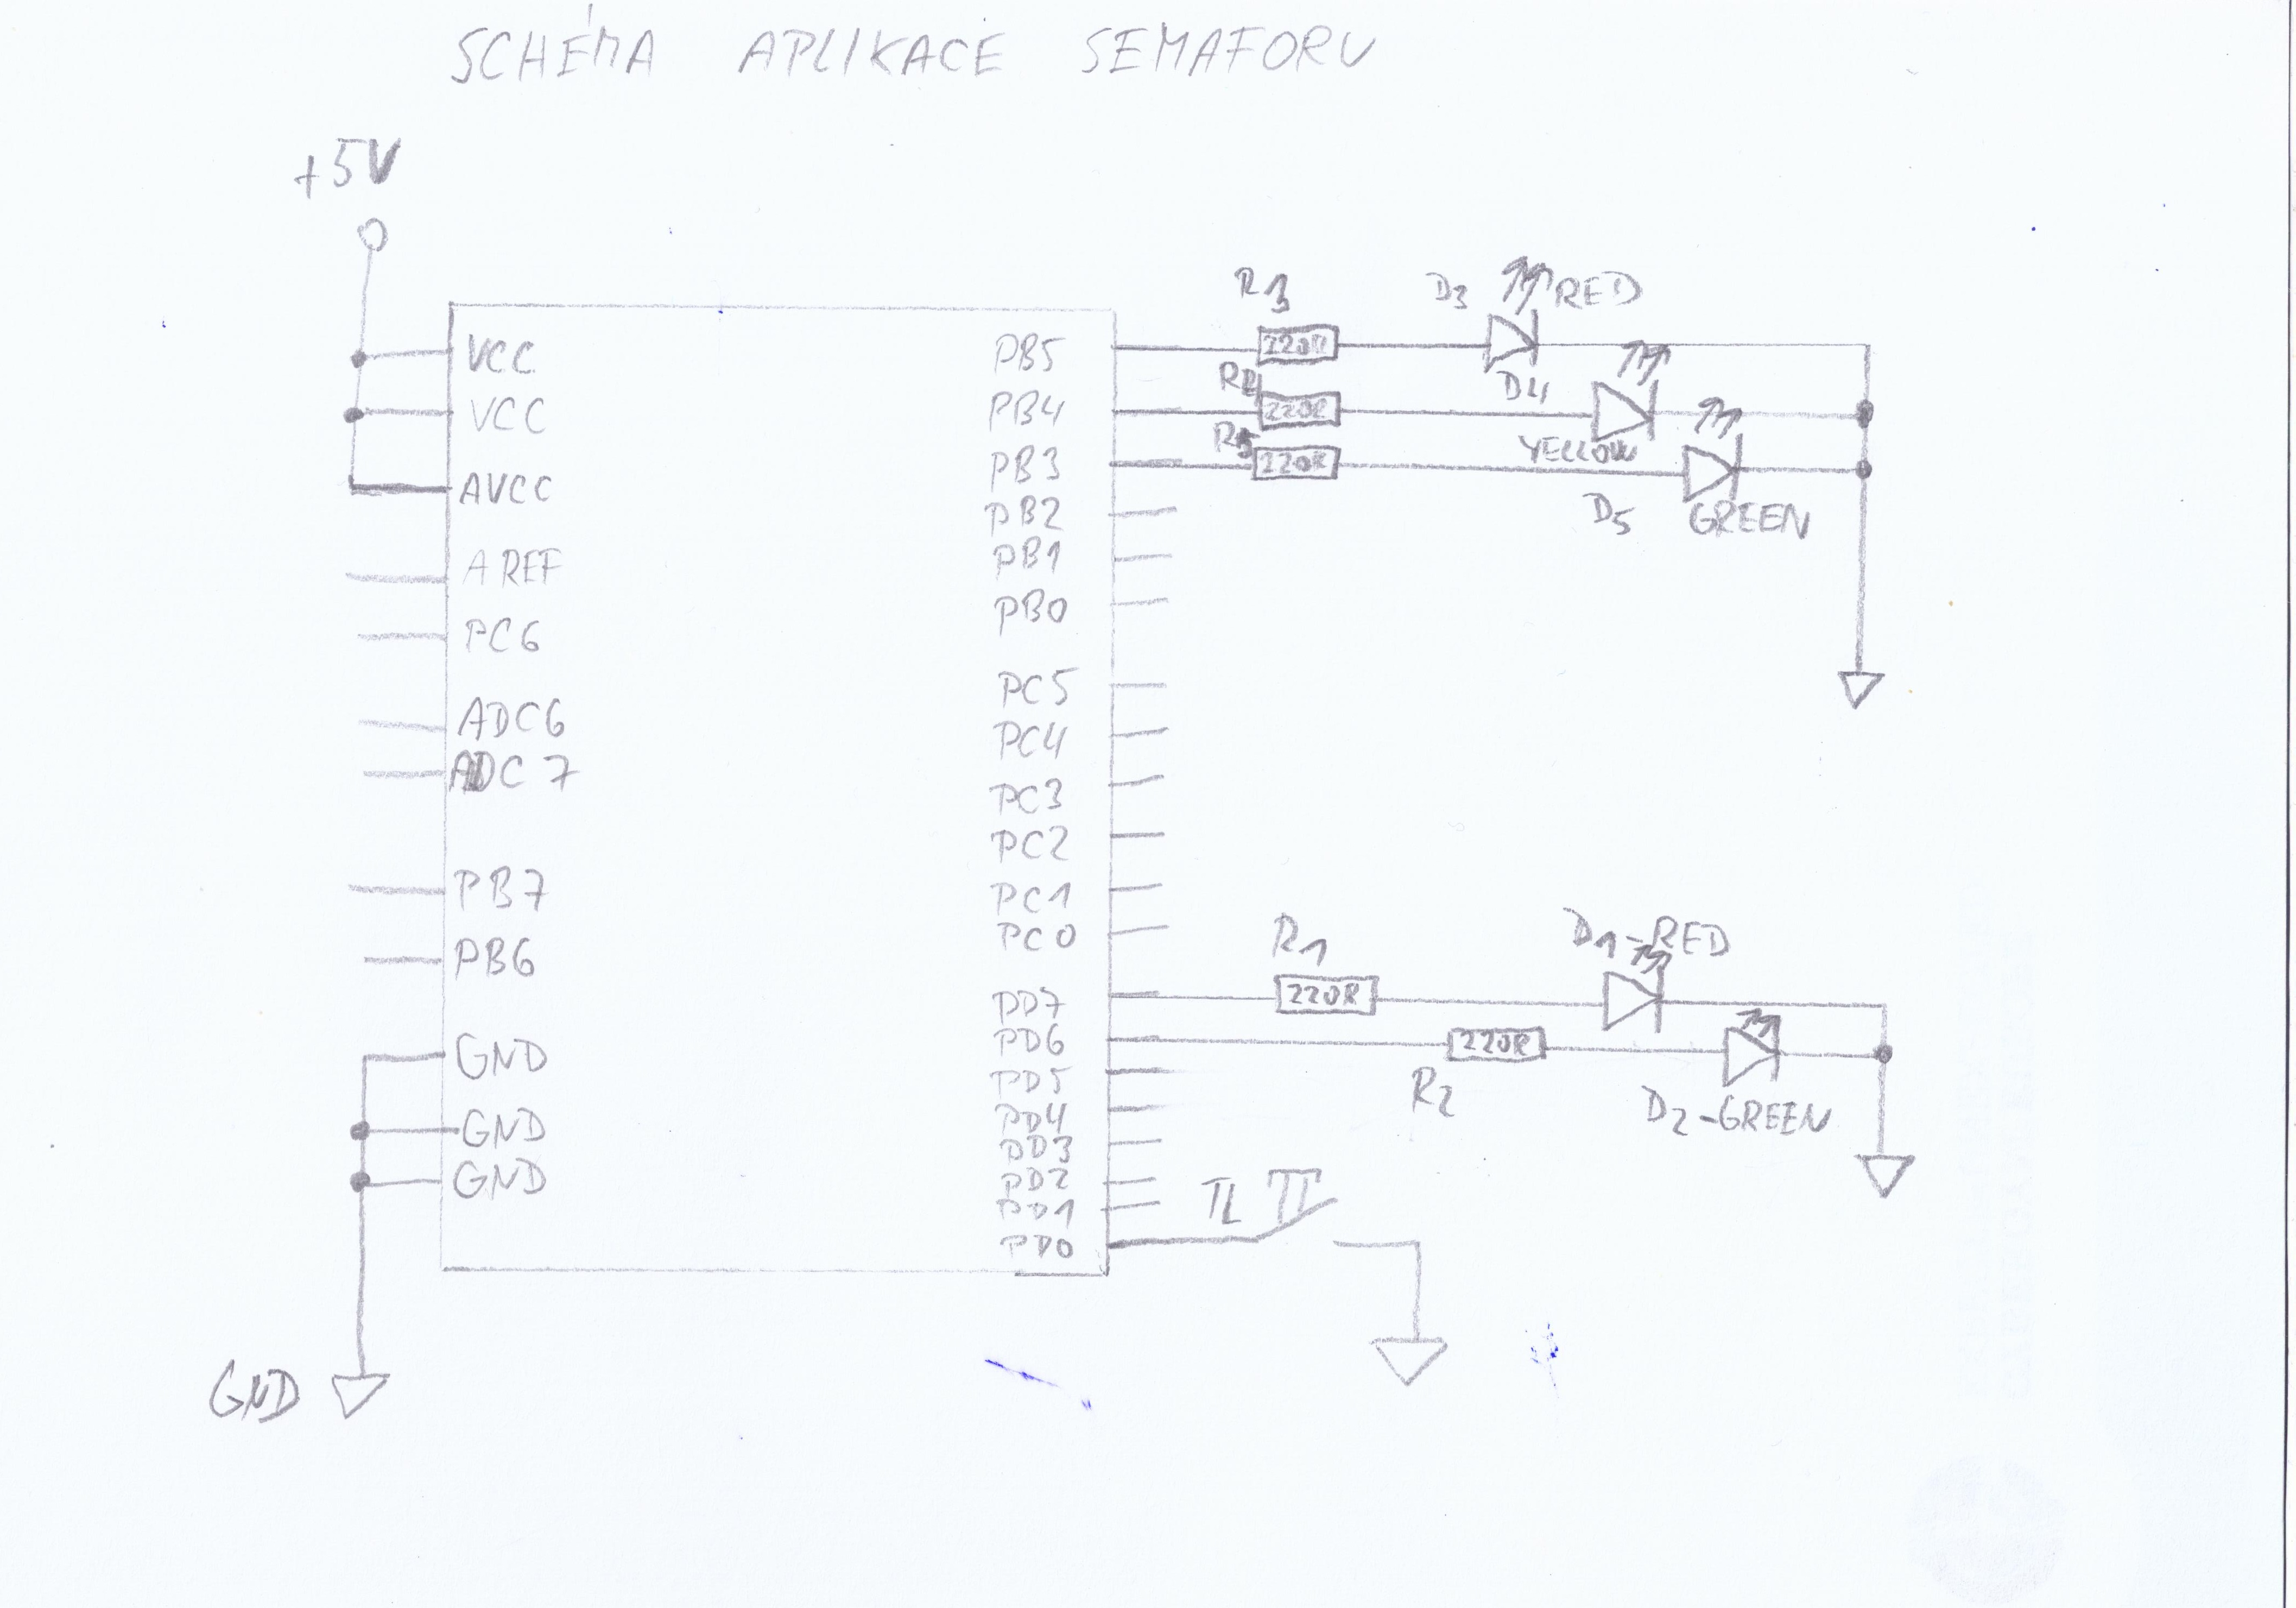 SCHÉMA APLIKACE SEMAFORU
+5V
VCC
VCC
AVCC
AREF
PC6
ADC6
ADC7
PB7
PB6
GND
GND
GND
GND
PB5
PB4
PB3
PB2
PB1
PB0
PC5
PC4
PC3
PC2
PC1
PC0
PD7
PD6
PD5
PD4
PD3
PD2
PD1
PD0
R3
220R
D3
RED
R4
220R
D4
YELLOW
R5
220R
D5
GREEN
R1
220R
D1-RED
220R
R2
D2-GREEN
TL